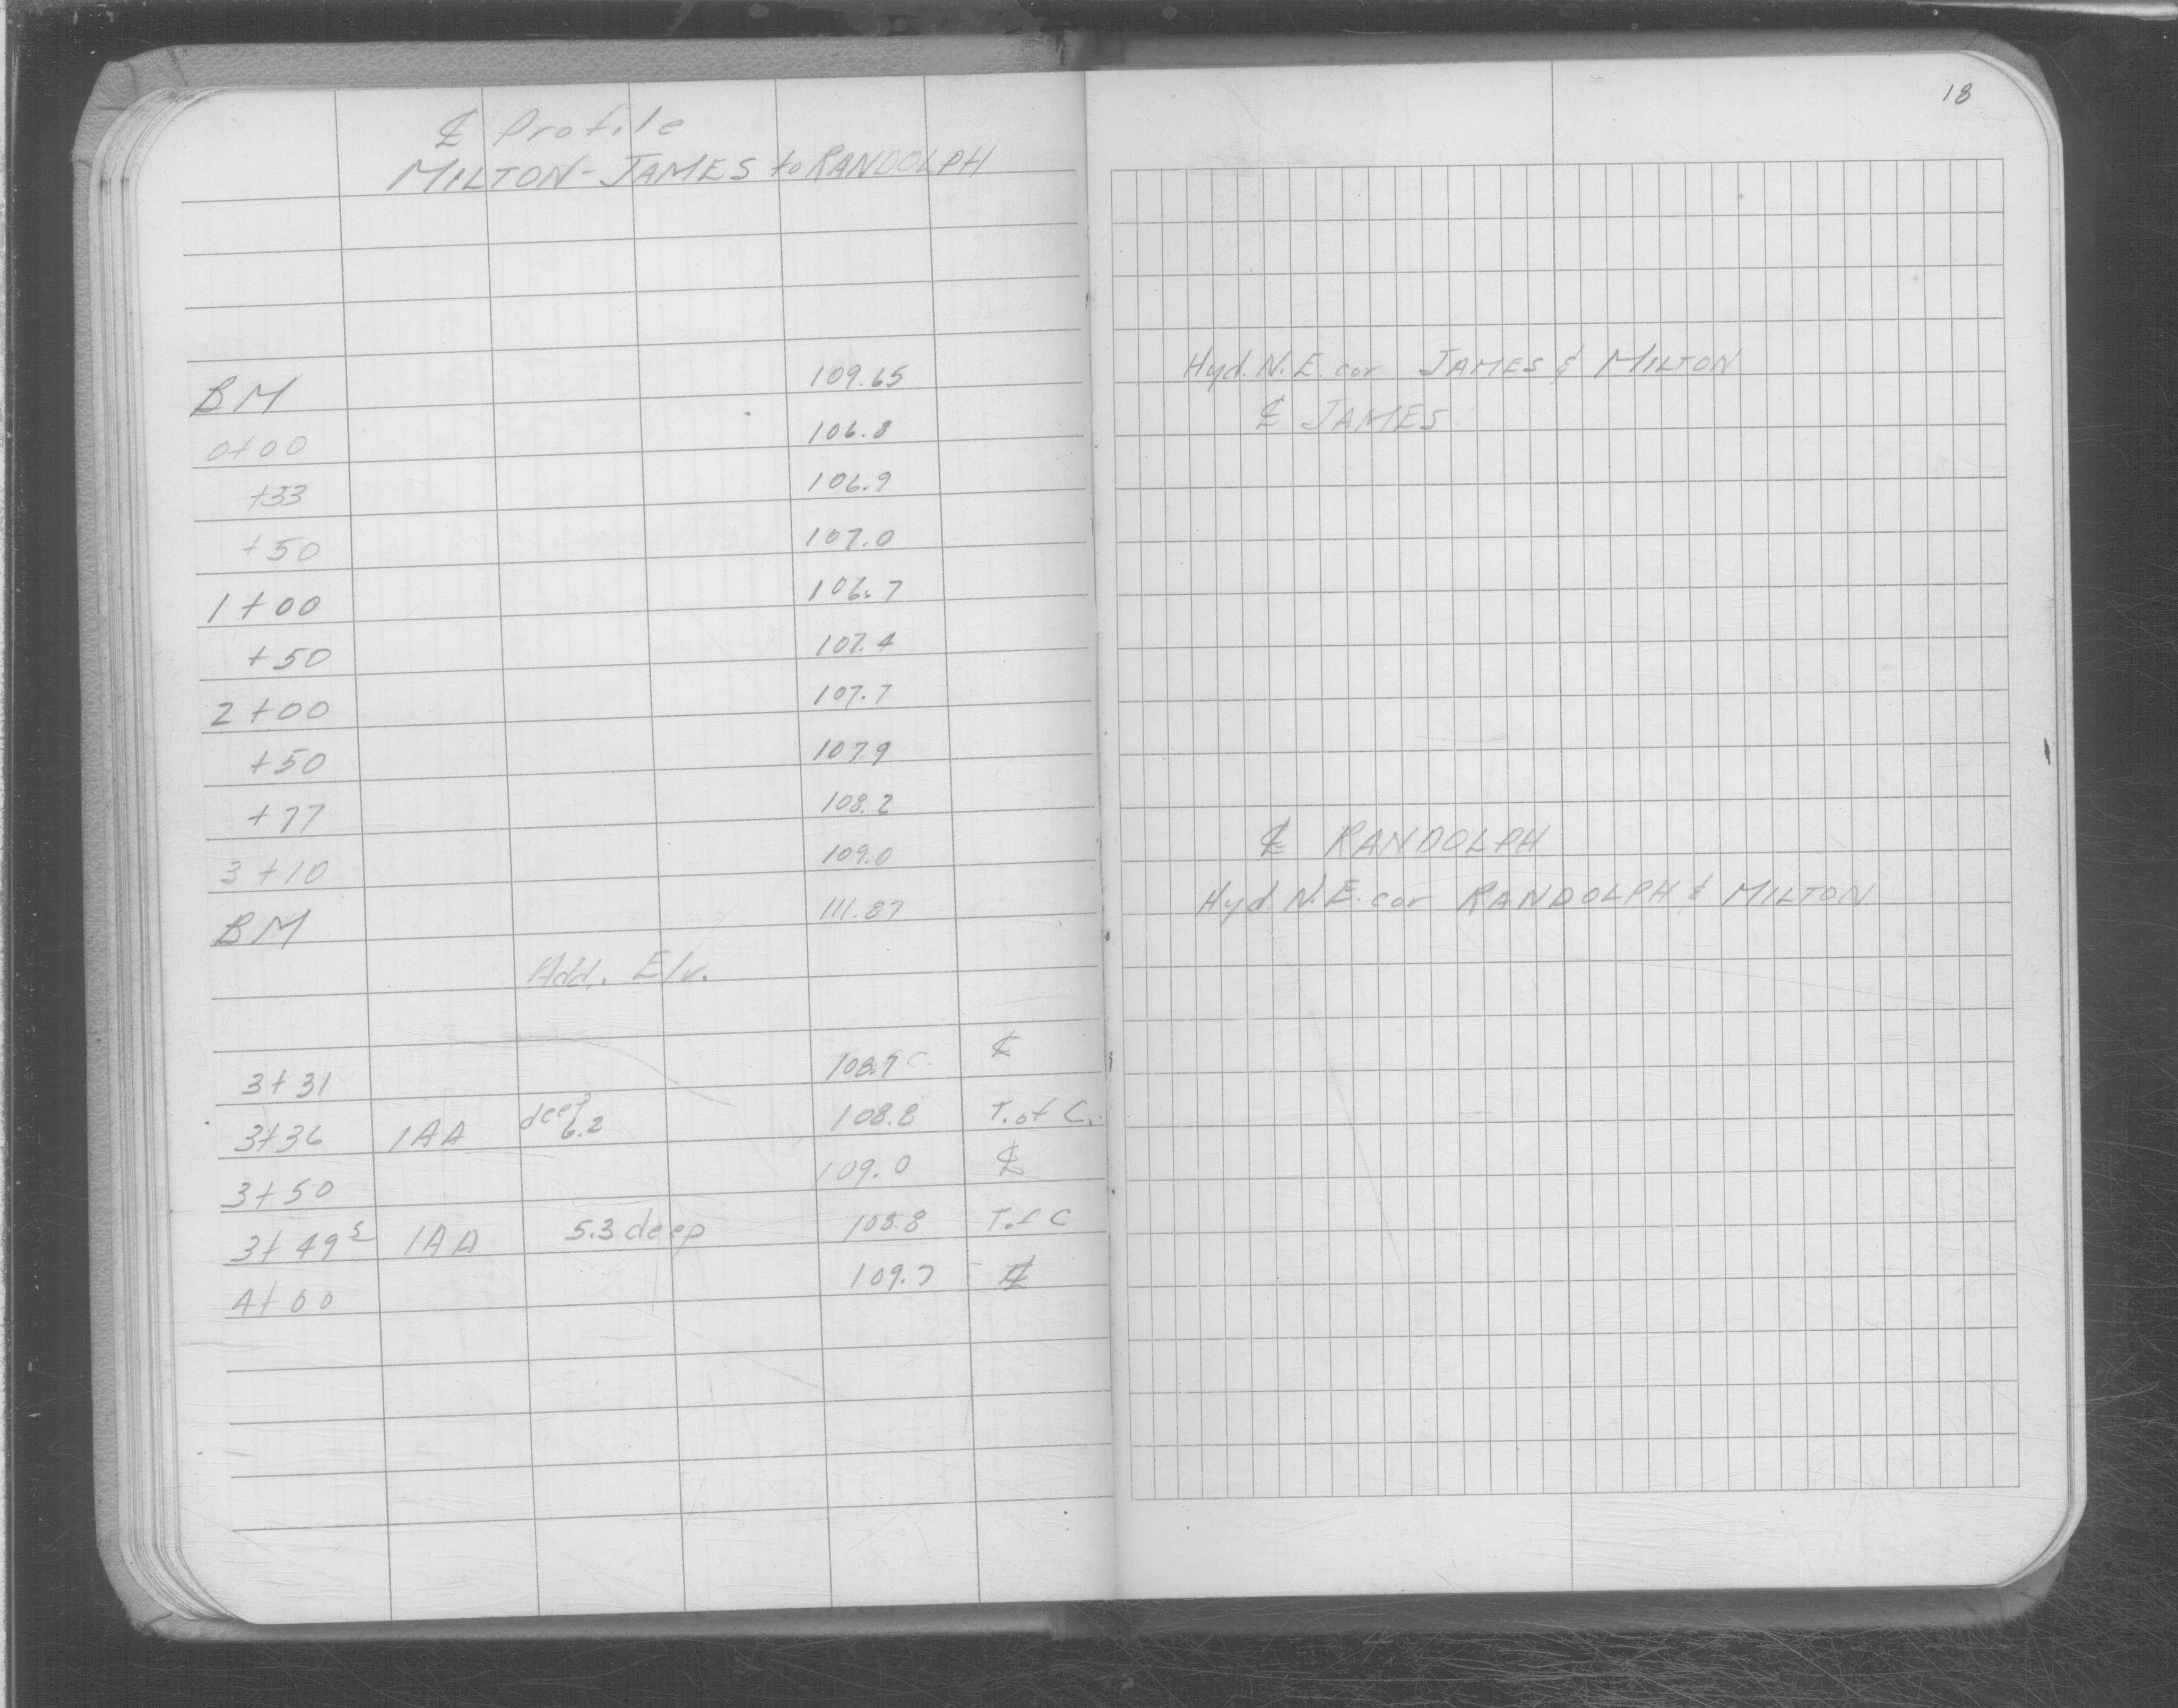 18
℄ Profile
MILTON - JAMES to RANDOLPH
BM 109.65 Hyd. N.E. cor JAMES & MILTON
0+00 106.8 ℄ JAMES
+33 106.9
+50 107.0
1+00 106.7
+50 107.4
2+00 107.7
+50 107.9
+77 108.2
3+10 109.0 ℄ RANDOLPH
BM 111.87 Hyd N.E. cor RANDOLPH & MILTON
Add. Elv.
3+31 108.7 ℄
3+36 1AA deep 6.2 108.8 T. of C.
3+50 109.0 ℄
3+49⁵ 1AA 5.3 deep 108.8 T. of C
4+00 109.7 ℄